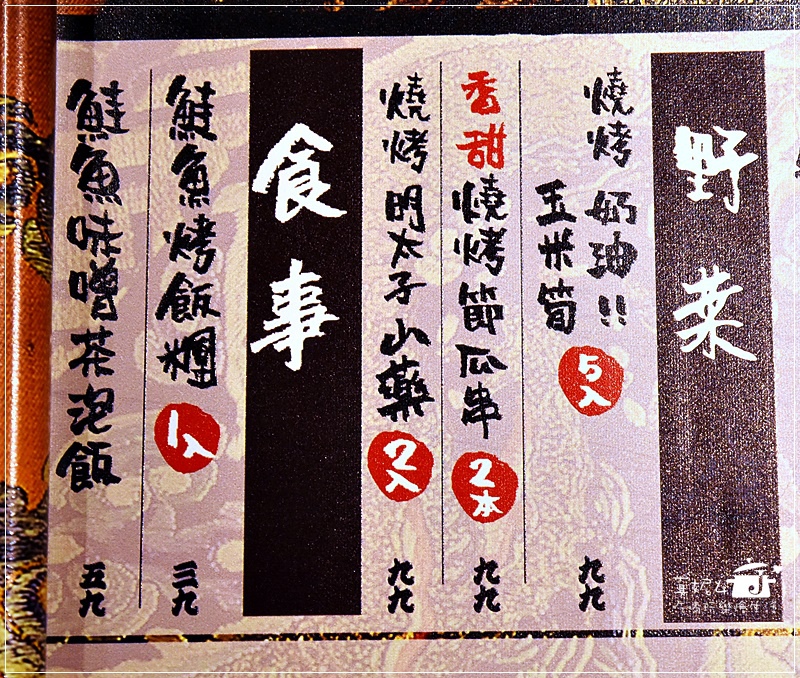 野菜
燒烤 奶油!!
玉米筍
5入
九九
香甜燒烤節瓜串
2本
九九
燒烤明太子山藥
2入
九九
食事
鮭魚烤飯糰
1入
三九
鮭魚味噌茶泡飯
五九